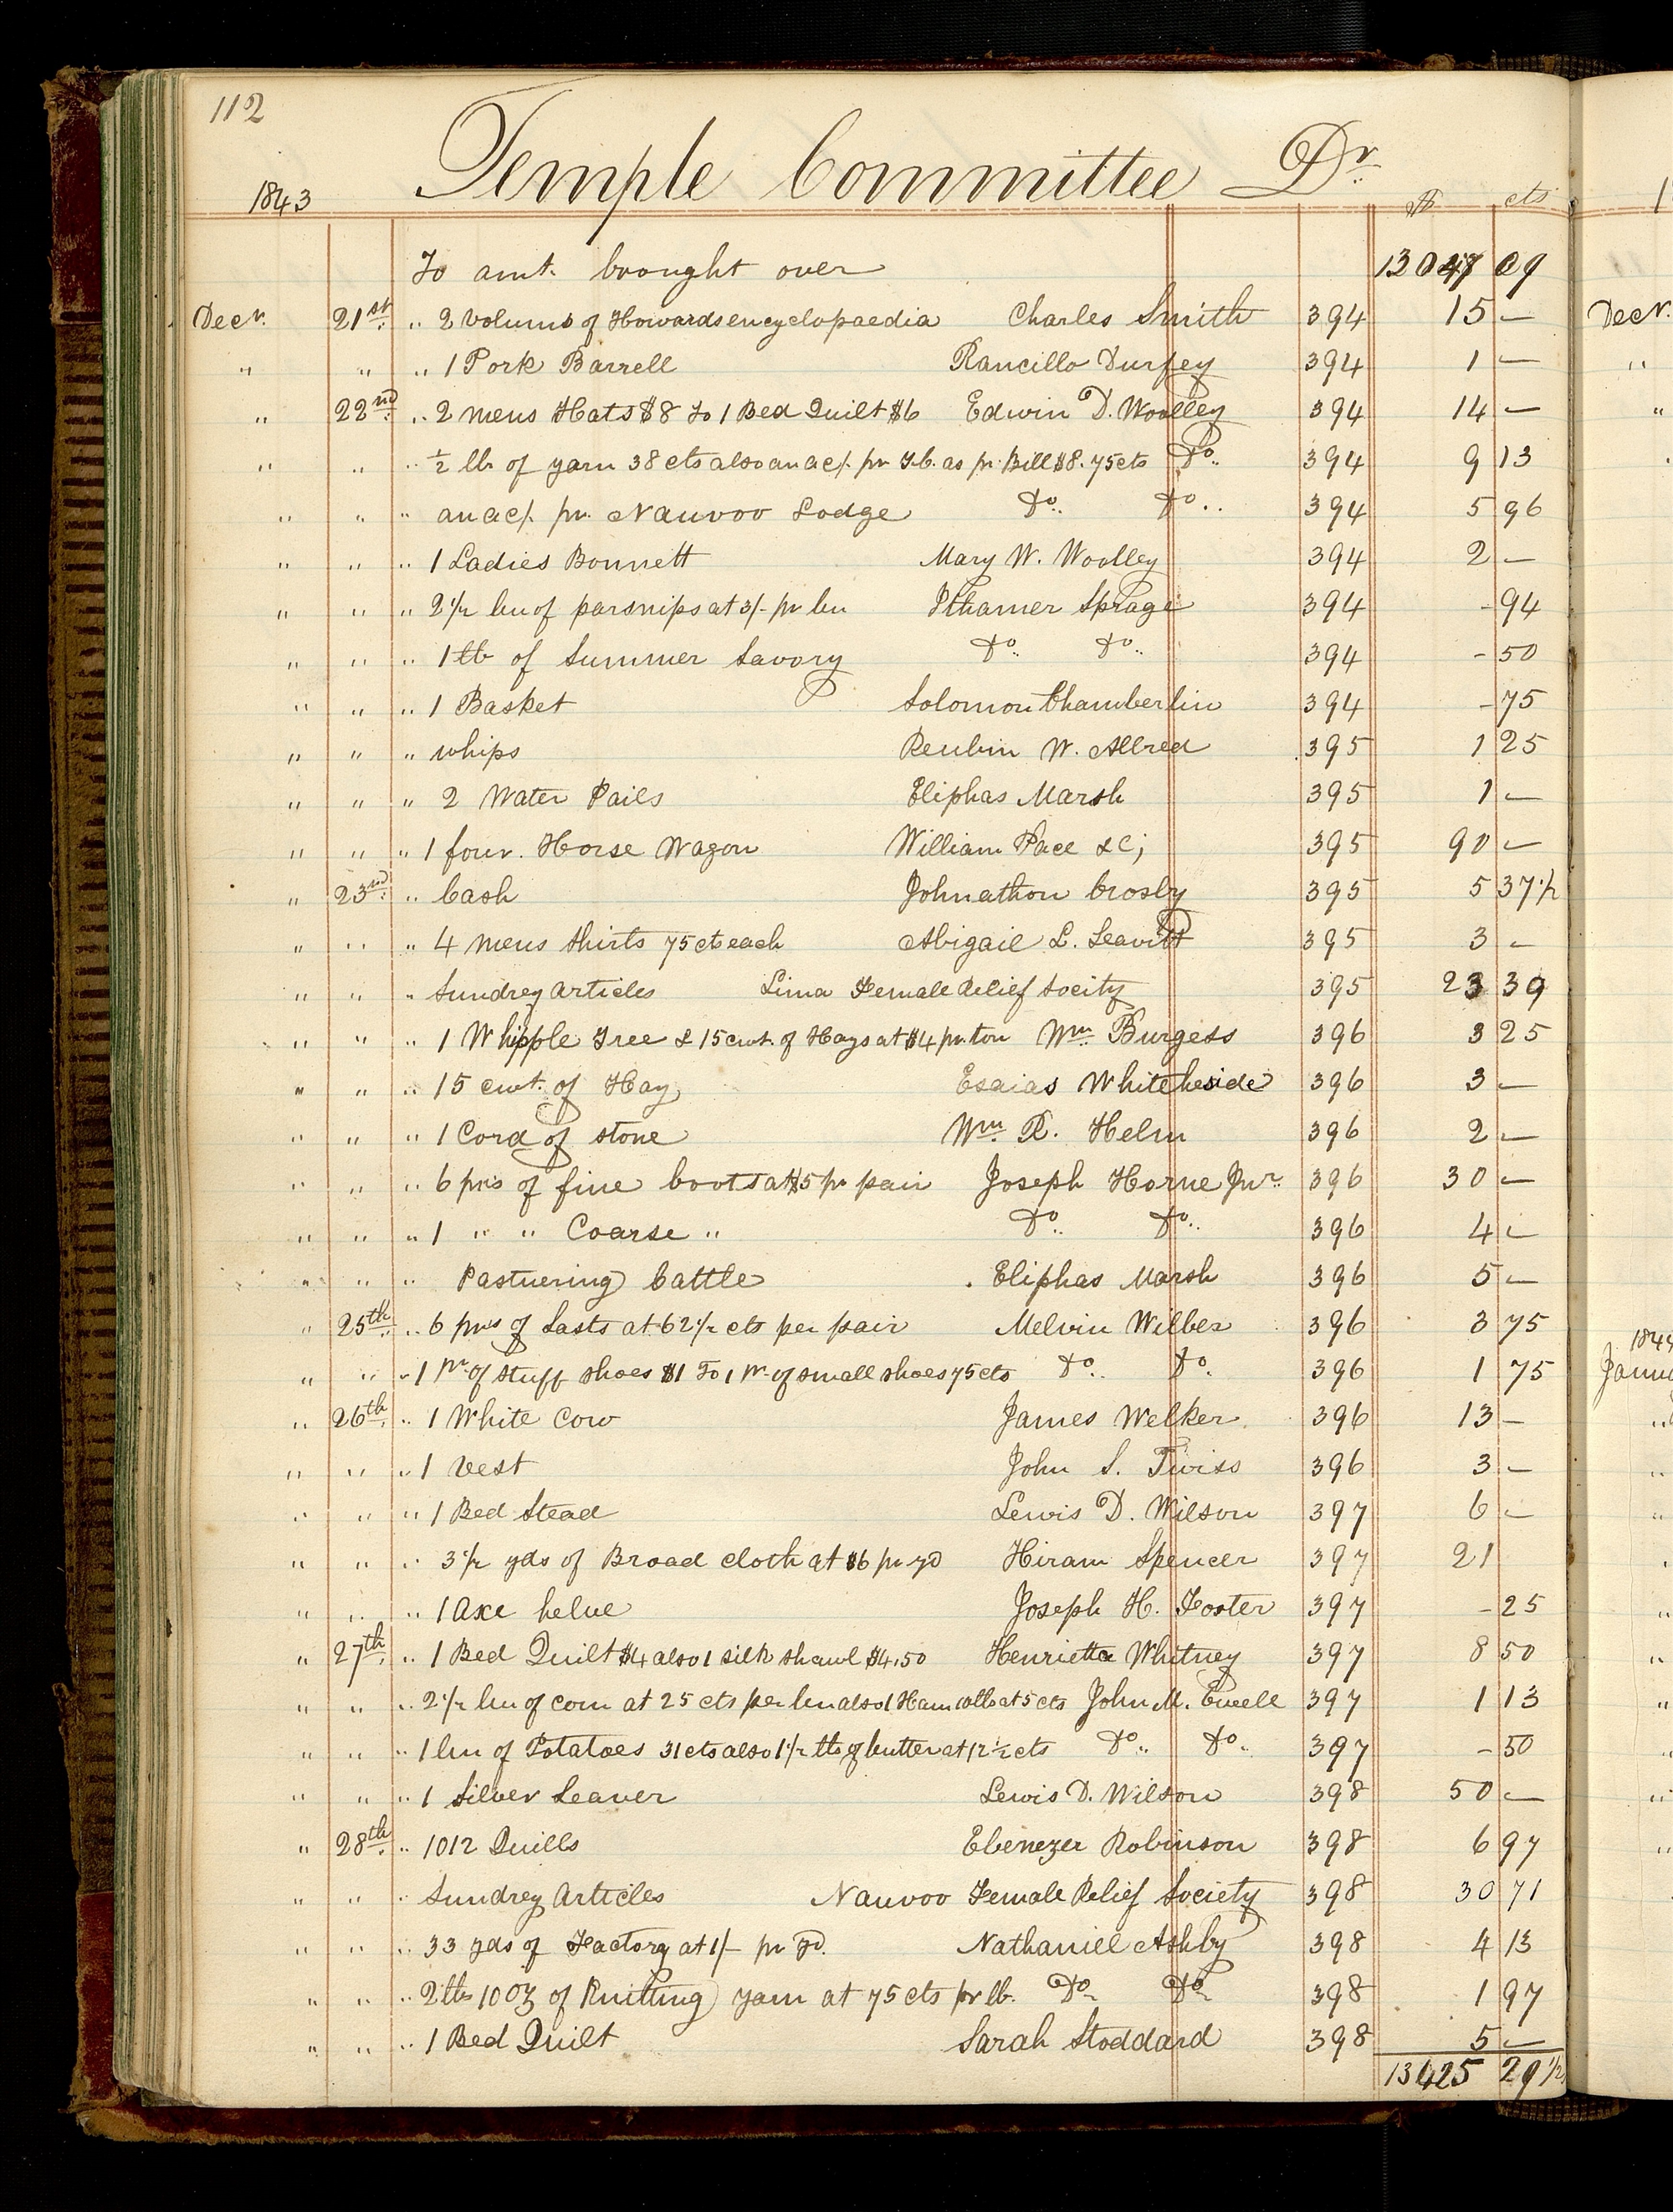 112
Temple Committee Dr.
1843 $ cts
To amt. brought over 13047 09
Decr. 21st. " 2 Volums of Howards encyclopaedia Charles Smith 394 15 —
" " " 1 Pork Barrell Rancillo Durfey 394 1 —
" 22nd. " 2 mens Hats $8 To 1 Bed Quilt $6 Edwin D. Woolley 394 14 —
" " " ½ lb of yarn 38 cts also an ac/. pr T.C. as pr. Bill $8.75cts Do. 394 9 13
" " " an ac/. pr. Nauvoo Lodge Do. Do. 394 5 96
" " " 1 Ladies Bonnett Mary W. Woolley 394 2 —
" " " 2½ bu of parsnips at 3/- pr bu Ithamer Sprage 394 - 94
" " " 1 lb of Summer Savory Do. Do. 394 - 50
" " " 1 Basket Solomon Chamberlin 394 - 75
" " " whips Reubin W. Allred 395 1 25
" " " 2 Water Pails Eliphas Marsh 395 1 —
" " " 1 four. Horse Wagon William Pace &C; 395 90 —
" 23nd. " Cash Johnathon Crosby 395 5 37½
" " " 4 mens Shirts 75 cts each Abigail L. Leavitt 395 3 —
" " " Sundrey Articles Lima Female Relief Socity 395 23 39
" " " 1 Whipple Tree & 15 cwt. of Hay at $4 pr. ton Wm. Burgess 396 3 25
" " " 15 cwt. of Hay Esaias Whiteheside 396 3 —
" " " 1 Cord of stone Wm. R. Helm 396 2 —
" " " 6 prs of fine boots at $5 pr pair Joseph Horne Jur. 396 30 —
" " " 1 " " Coarse " Do. Do. 396 4 —
" " " Pastuering Cattle Eliphas Marsh 396 5 —
" 25th. " 6 prs of Lasts at 62½ cts per pair Melvin Wilber 396 3 75
" " " 1 pr. of stuff shoes $1 To 1 pr. of small shoes 75 cts Do. Do. 396 1 75
" 26th. " 1 White Cow James Welker. 396 13 —
" " " 1 Vest John S. Twiss 396 3 —
" " " 1 Bed Stead Lewis D. Wilson 397 6 —
" " " 3½ yds of Broad cloth at $6 pr yd Hiram Spencer 397 21
" " " 1 Axe helve Joseph H. Foster 397 - 25
" 27th. " 1 Bed Quilt $4 also 1 silk shawl $4.50 Henrietta Whitney 397 8 50
" " " 2½ bu of corn at 25 cts per bu also 1 Ham 10lb at 5 cts John M. Ewell 397 1 13
" " " 1 bu of Potatoes 31 cts also 1½ lbs of butter at 12½ cts Do. Do. 397 - 50
" " " 1 Silver Leaver Lewis D. Wilson 398 50 —
" 28th. " 1012 Quills Ebenezer Robinson 398 6 97
" " " Sundrey Articles Nauvoo Female Relief Society 398 30 71
" " " 33 yds of Factory at 1/- pr yd. Nathaniel Ashby 398 4 13
" " " 2 lbs 10 oz of Knitting yarn at 75 cts pr lb. Do. Do. 398 1 97
" " " 1 Bed Quilt Sarah Stoddard 398 5 —
13425 29½
Decr.